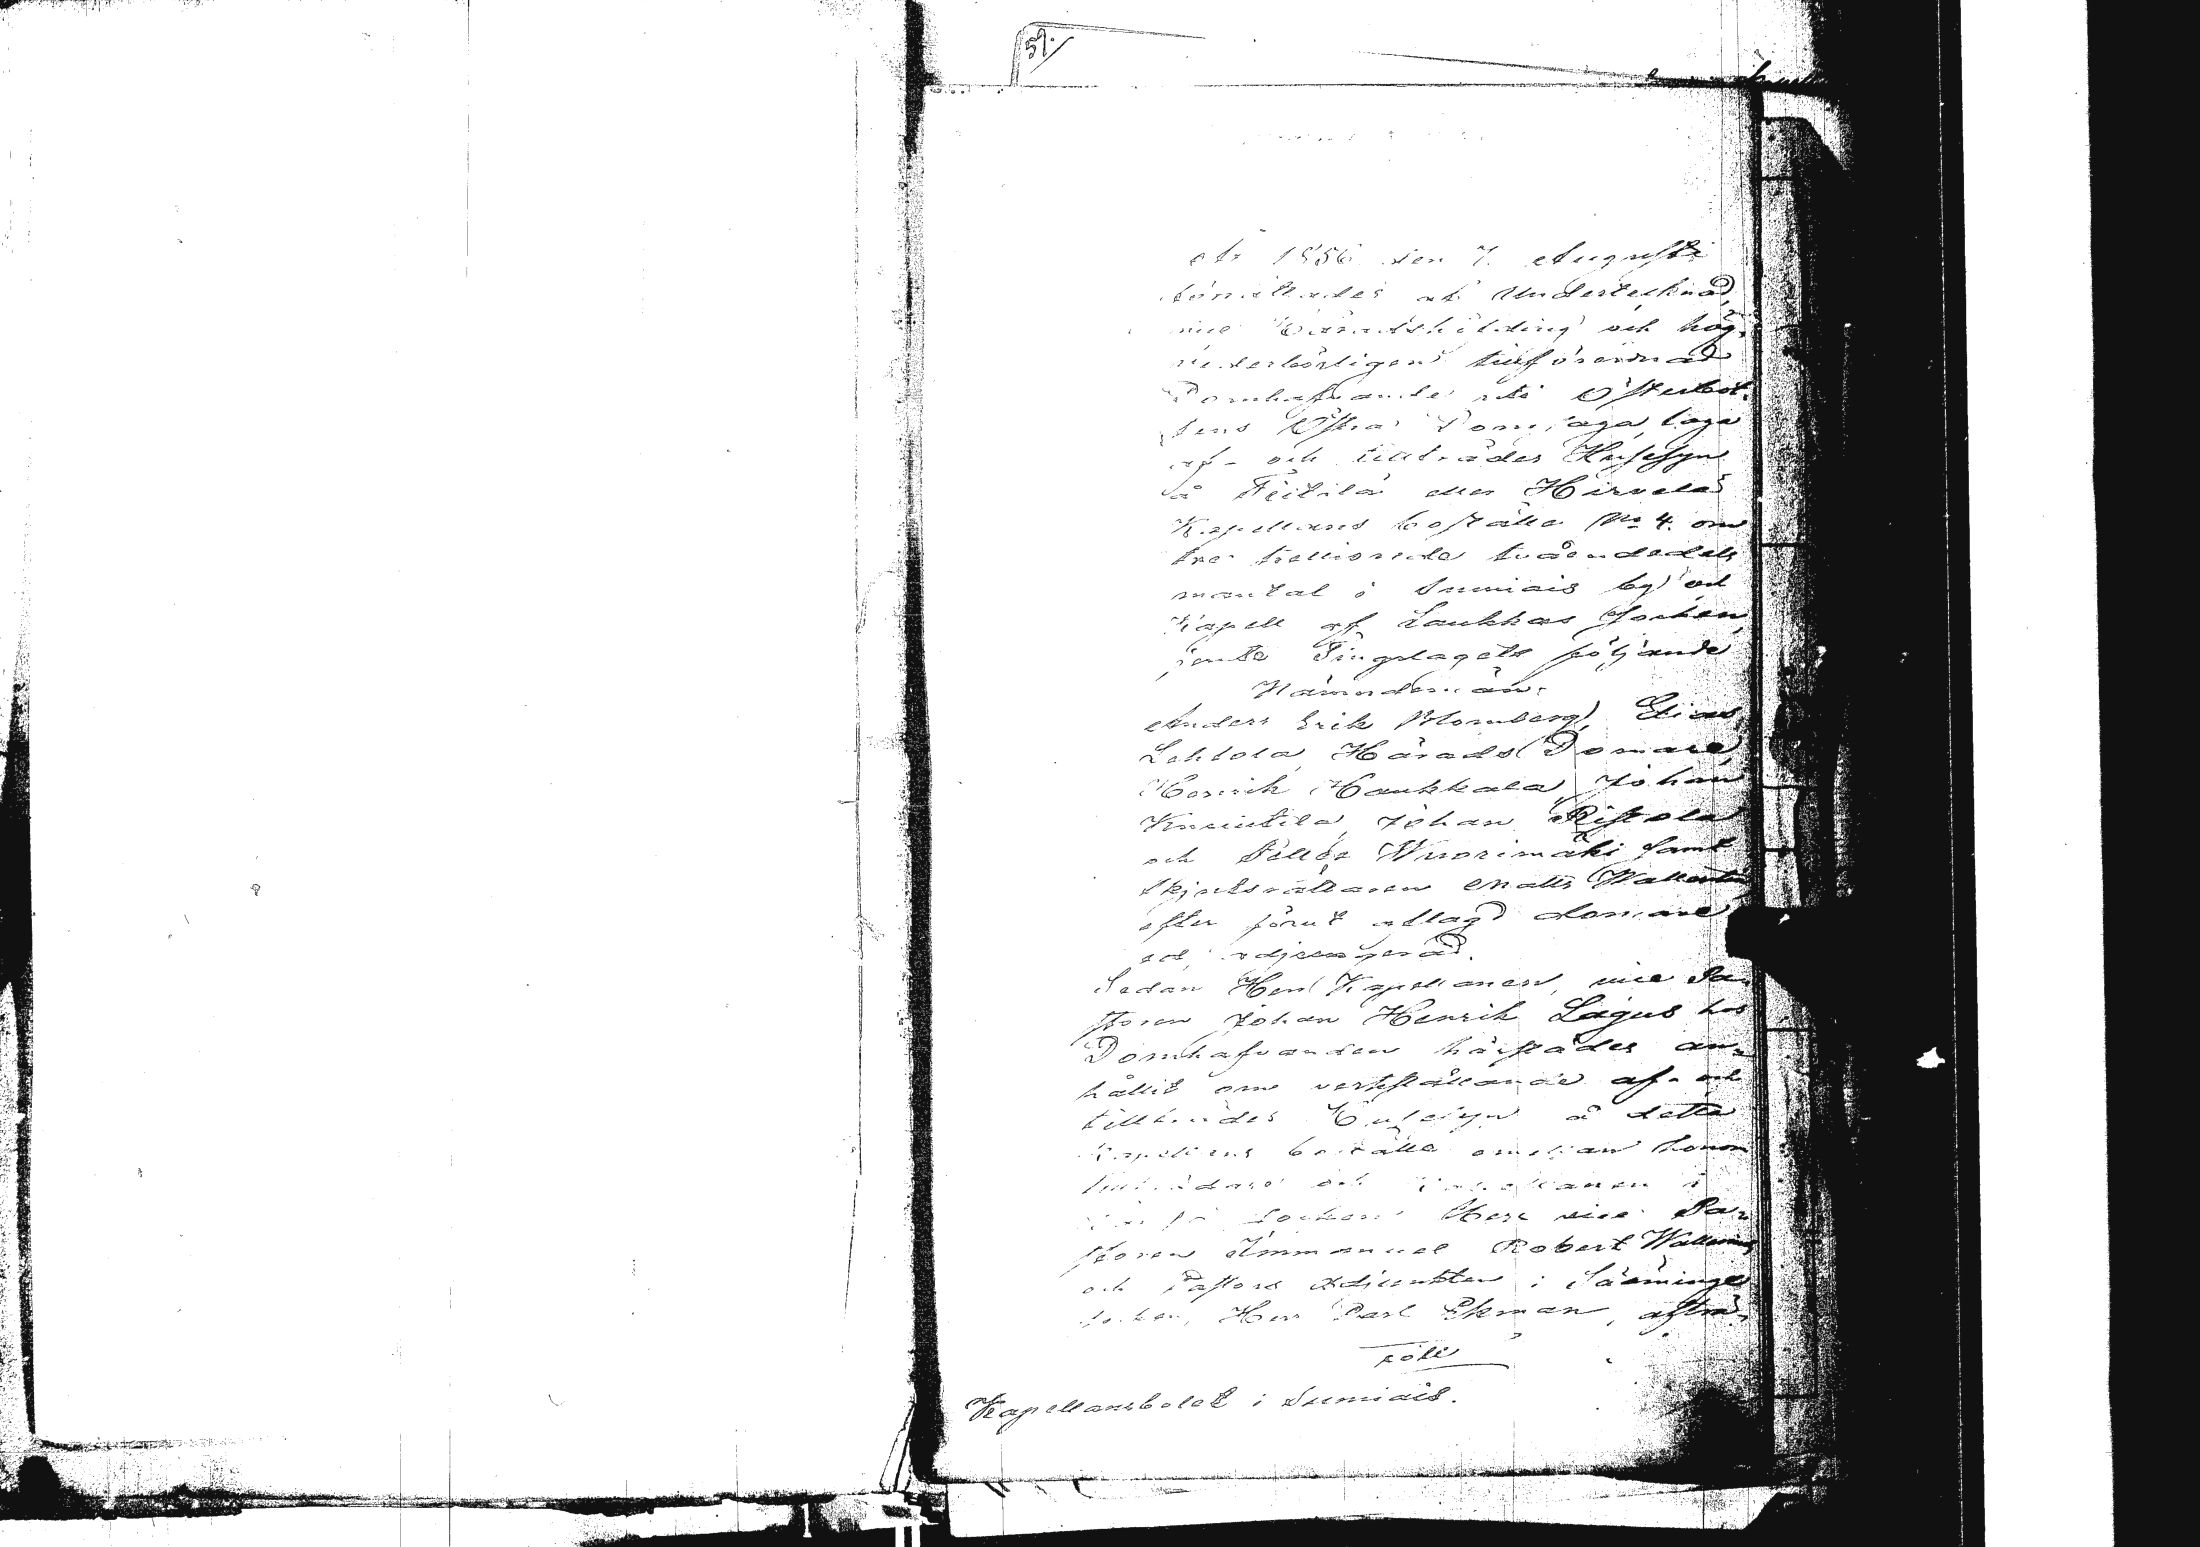 59.
År 1856 den 7. Augusti
förrättades af Undertecknad,
vice Häradshöfding och hög-
vederbörligen tillförordnad
Domhafvande uti Österbot-
tens Östra Domsaga, laga
af- och tillträdes Husesyn
å Feitilä eller Hirvelä
Kapellans boställe No 4. om
tre trettionde tvåendedels
mantal i Sumiais by och
Kapell af Laukkas Socken,
jemte Tingslagets följande
Nämndemän:
Anders Erik Blomberg, Elias
Lehtola, Härads Domare
Henrik Haukkala, Johan
Knuutila, Johan Ristola
och Wuorimäki samt
Skjutsrättaren Matts
efter förut aflagd domare
ed, adjungerad.
Sedan Herr Kapellanen, vice Pa-
storen Johan Henrik Lagus hos
Domhafvanden härstädes an-
hållit om verkställande af af- och
tilltrades Husesyn å detta
Kapellans boställe emellan honom
tillträdare och Kapellanen i
Socken Herr vice Pa-
storen Immanuel Robert Wallenius
och Pastors Adjunkten i Sääminge
Socken, Herr Carl Ekman, afträ-
Kapellansbolet i Sumiais.